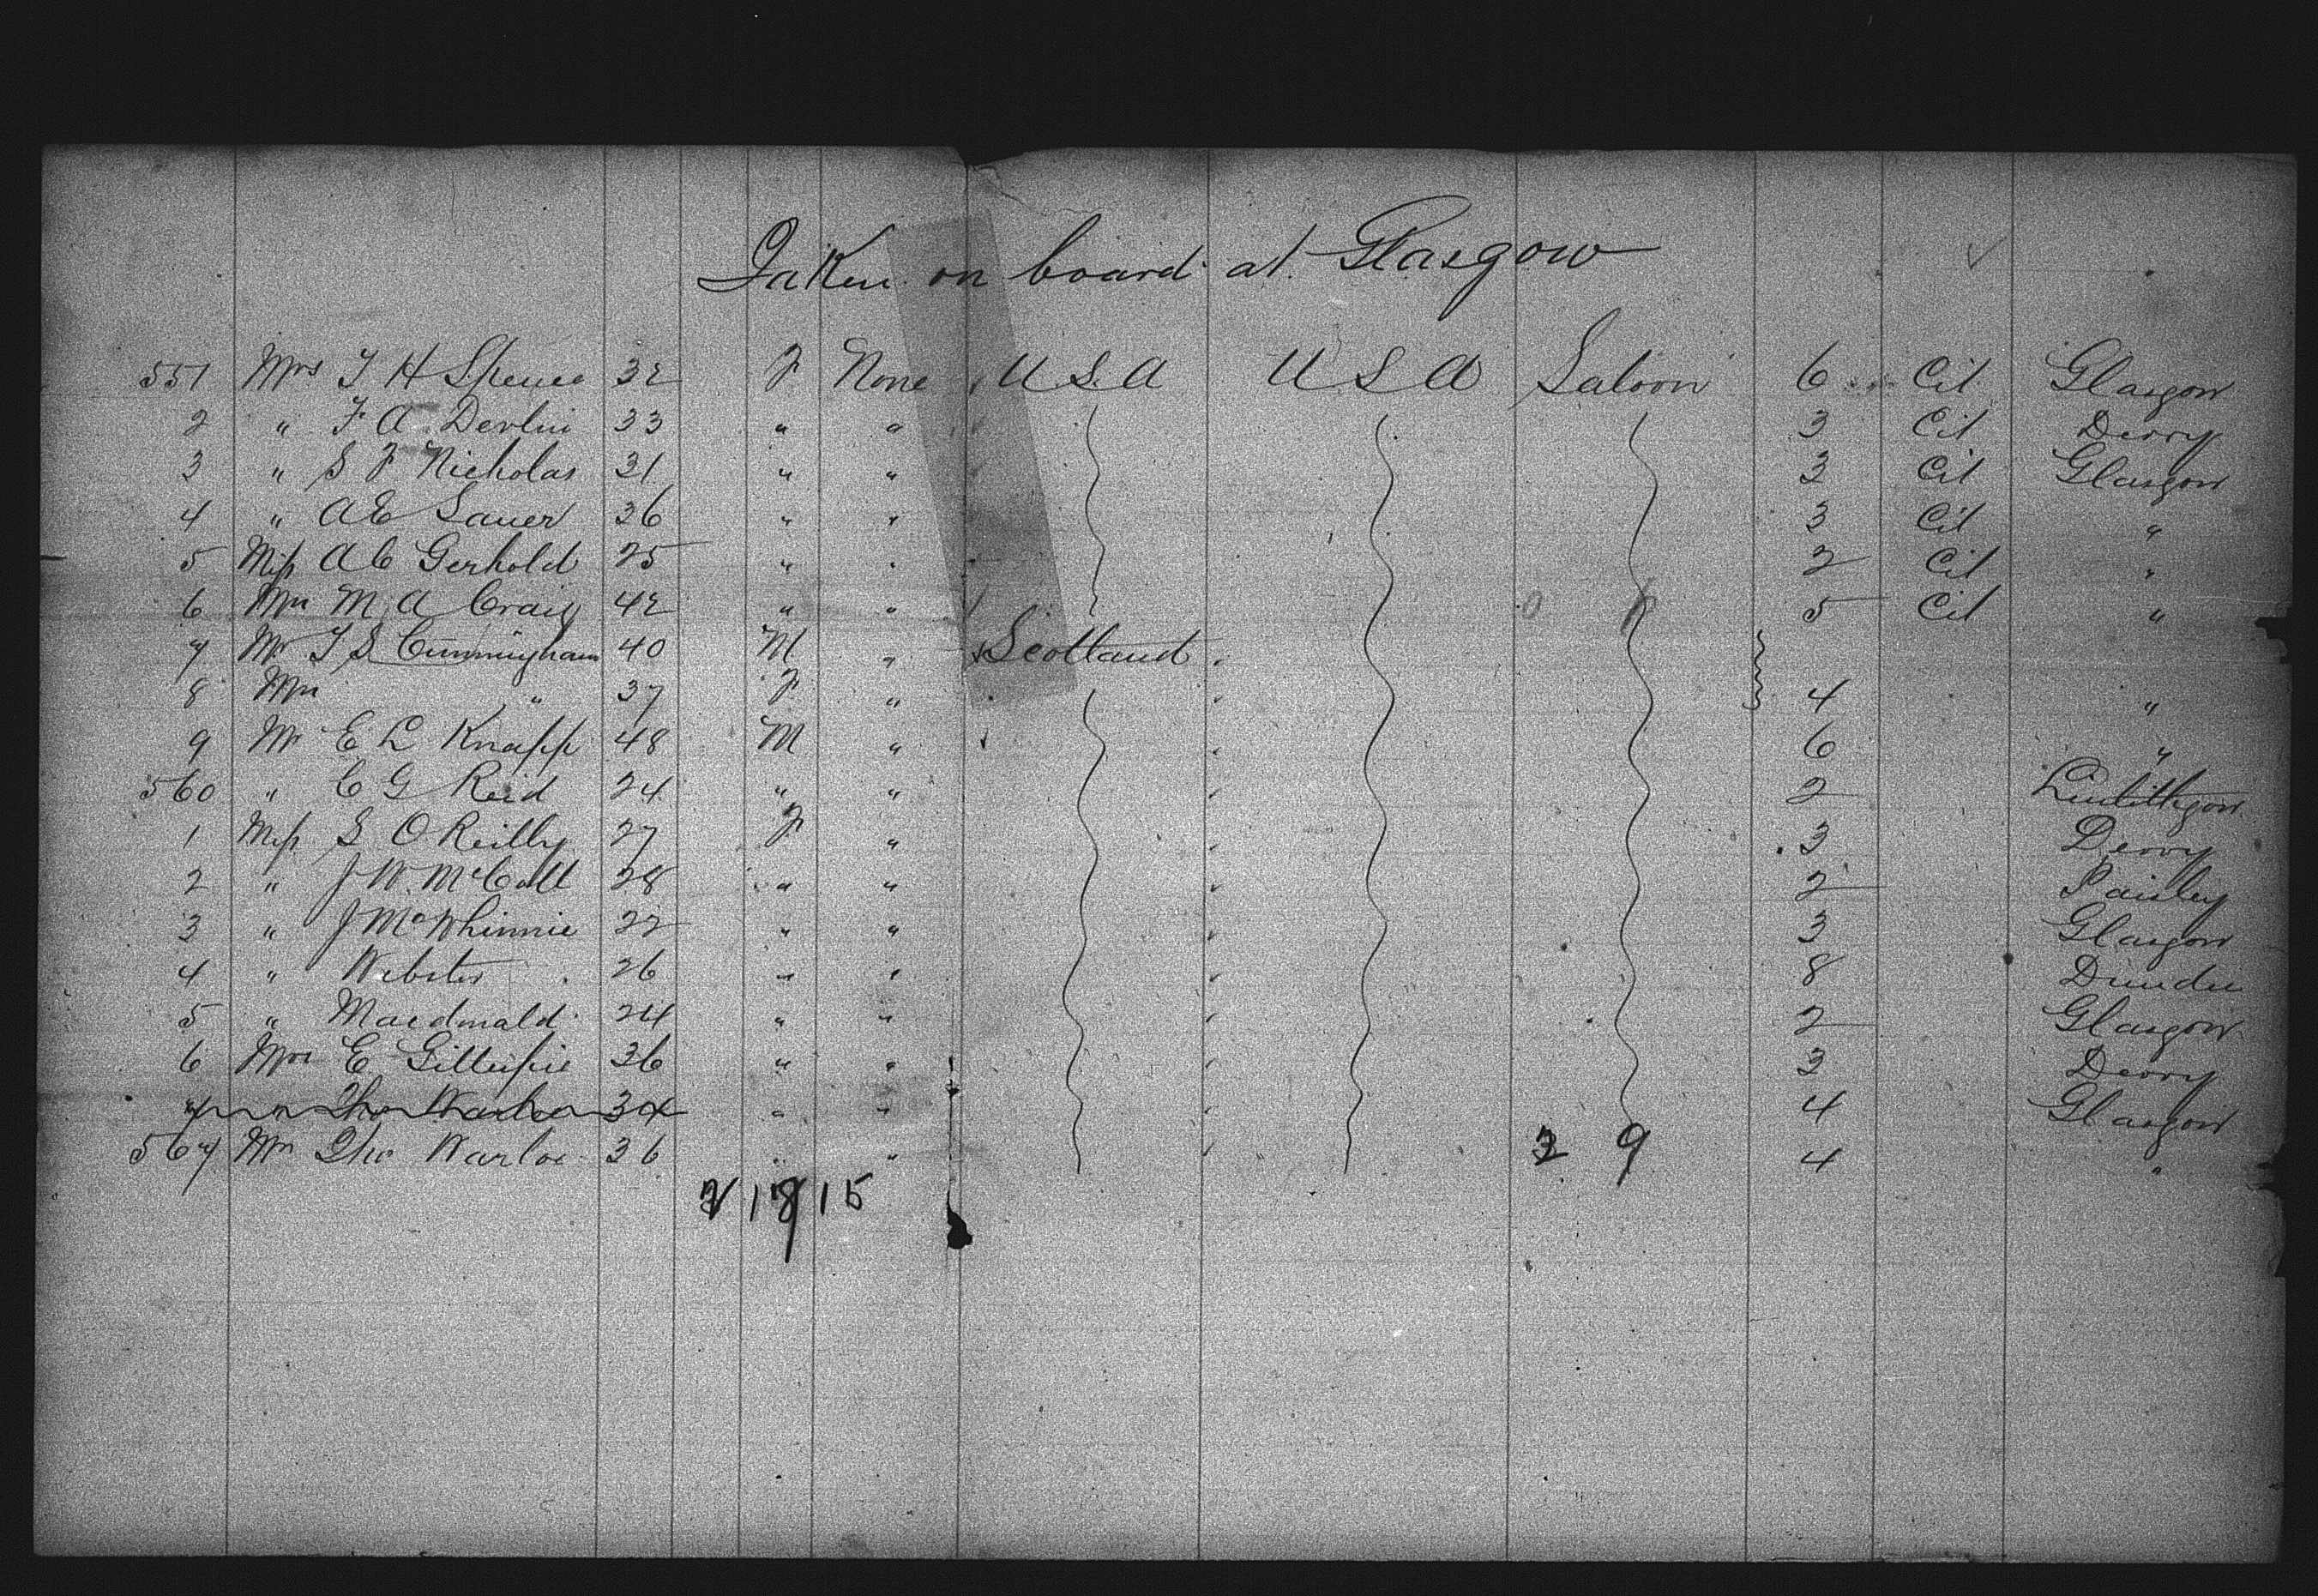 Taken on board at Glasgow
551 Mrs T H Spence 32 F None U S A U S A Saloon 6 Cit Glasgow
2 " F A Devlin 33 " " 3 Cit Derry
3 " S F Nicholas 31 " " 3 Cit Glasgow
4 " A E Sauer 36 " " 3 Cit "
5 Miss A C Gerhold 25 " " 2 Cit "
6 Mrs M A Craig 42 " " 5 Cit "
7 Mr T S Cunningham 40 M " Scotland
8 Mrs " 37 F " 4 "
9 Mr E L Knapp 48 M " 6 "
560 " C G Reid 24 " " 2 Linlithgow
1 Miss S O Reilly 27 F " 3 Derry
2 " J W McCall 28 " " 2 Paisley
3 " J McWhinnie 22 " " 3 Glasgow
4 " Webster 26 " " 8 Dundee
5 " Macdonald 24 " " 2 Glasgow
6 Mrs E Gillespie 36 " " 3 Derry
7 " Tho 34 " " 4 Glasgow
567 Mrs Tho Warloe 36 " " 2 9 4 "
15